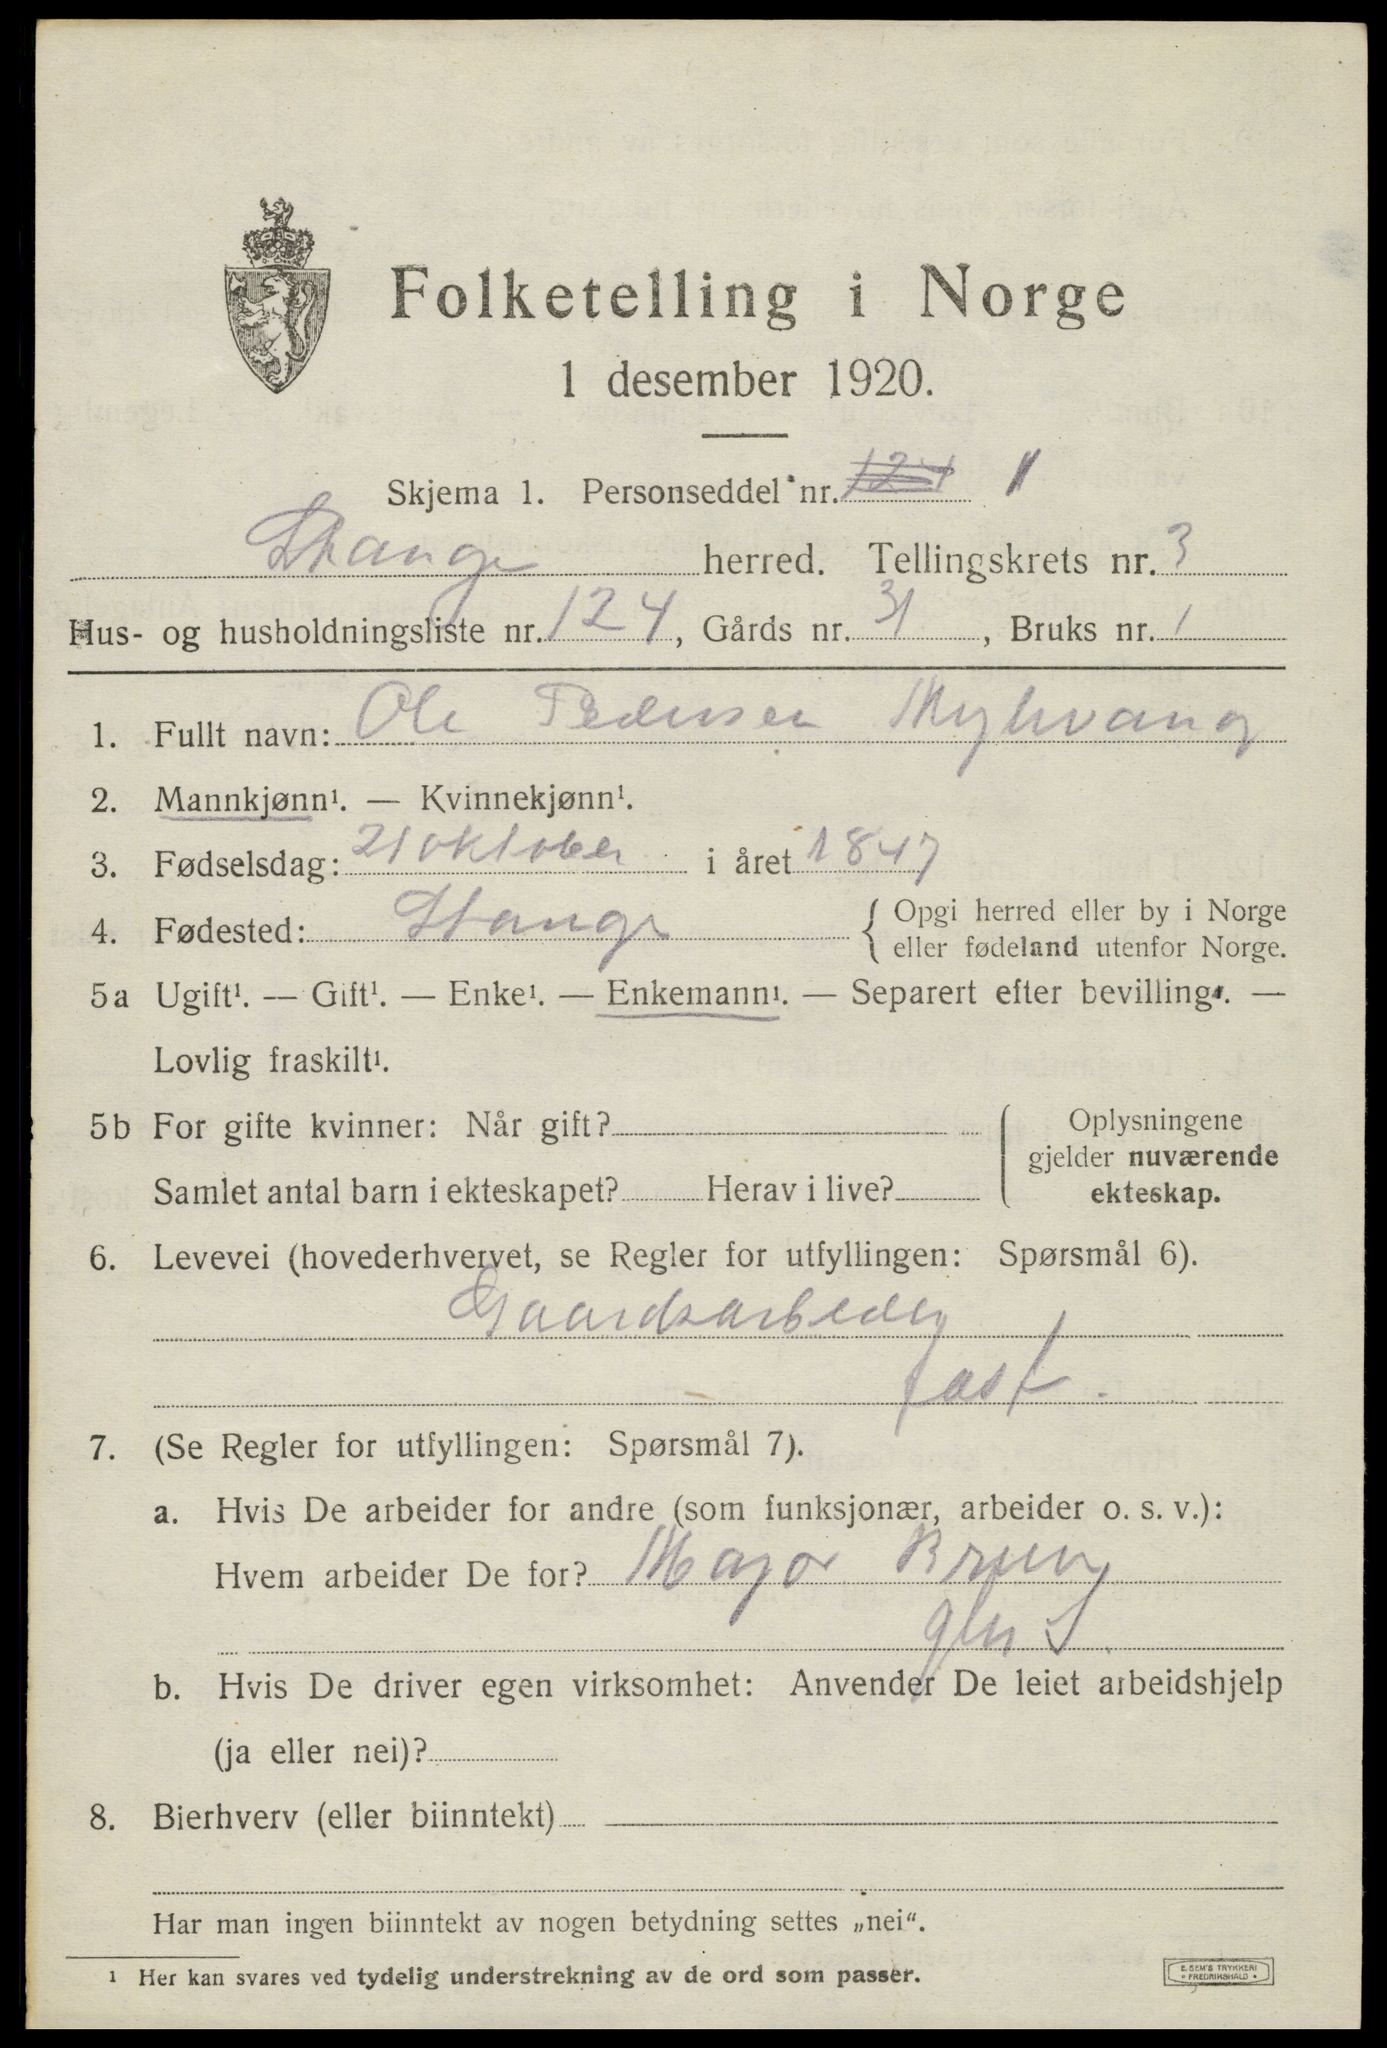 Folketelling i Norge
1 desember 1920.
Skjema 1. Personseddel nr. 124 1
Stange herred. Tellingskrets nr. 3
Hus- og husholdningsliste nr. 124, Gårds nr. 31, Bruks nr. 1
1. Fullt navn: Ole Pedersen Myhrvang
2. Mannkjønn¹. — Kvinnekjønn¹.
3. Fødselsdag: 21 oktober i året 1847
4. Fødested: Stange { Opgi herred eller by i Norge
eller fødeland utenfor Norge.
5a Ugift¹. — Gift¹. — Enke¹. — Enkemann¹. — Separert efter bevilling¹. —
Lovlig fraskilt¹.
5b For gifte kvinner: Når gift?
Samlet antal barn i ekteskapet? Herav i live?
Oplysningene
gjelder nuværende
ekteskap.
6. Levevei (hovederhvervet, se Regler for utfyllingen: Spørsmål 6).
Gaardsarbeider
fast.
7. (Se Regler for utfyllingen: Spørsmål 7).
a. Hvis De arbeider for andre (som funksjonær, arbeider o. s. v.):
Hvem arbeider De for? Major Bruun
b. Hvis De driver egen virksomhet: Anvender De leiet arbeidshjelp
(ja eller nei)?
8. Bierhverv (eller biinntekt)
Har man ingen biinntekt av nogen betydning settes „nei“.
¹ Her kan svares ved tydelig understrekning av de ord som passer.
E. SEM'S TRYKKERI
• FREDRIKSHALD •